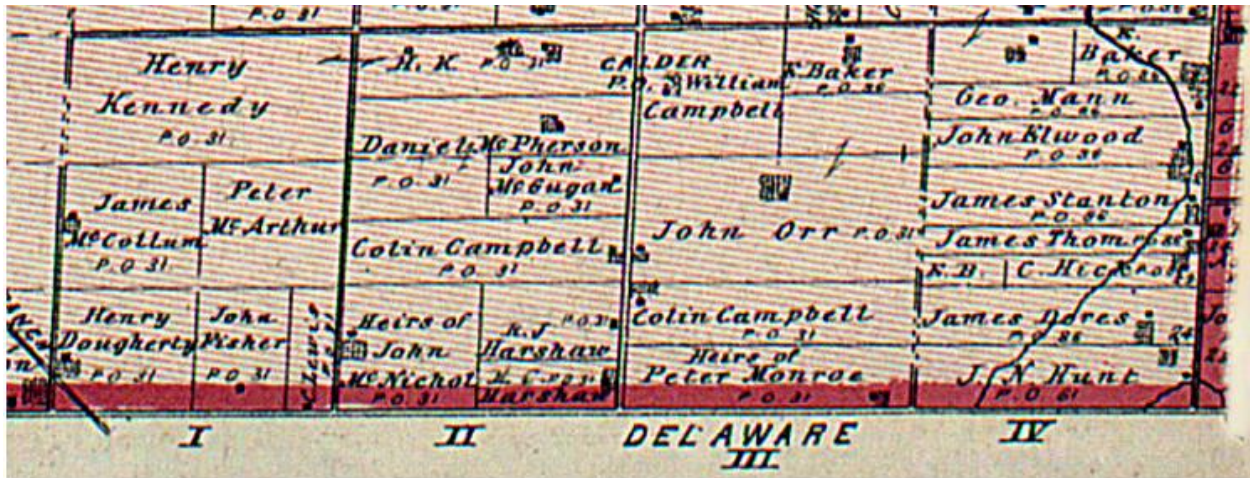 P.O 31
P.O 31
Henry
Kennedy
P.O. 31
James
McCollum
P.O 31
Peter
McArthur
Henry
Dougherty
P.O 31
John
Fisher
P.O 31
H. K
P.O 31
Daniel McPherson
P.O. 31
John
McGugan
P.O 31
Colin Campbell
P.O 31
Heirs of
John
McNichol
P.O 31
P.O 31
Harshaw
Harshaw
CALDER
P.O.
William
Campbell
K. Baker
P.O 86
John Orr P.O 31
Colin Campbell
P.O 31
Heirs of
Peter Monroe
P.O 31
K.
Baker
P.O 86
Geo. Mann
P.O 86
John Elwood
P.O 86
James Stanton
P.O 86
James Thom
K.B.
C. Hick
James Dores
P.O 86
24
J. N. Hunt
P.O 61
I
II
DELAWARE
III
IV